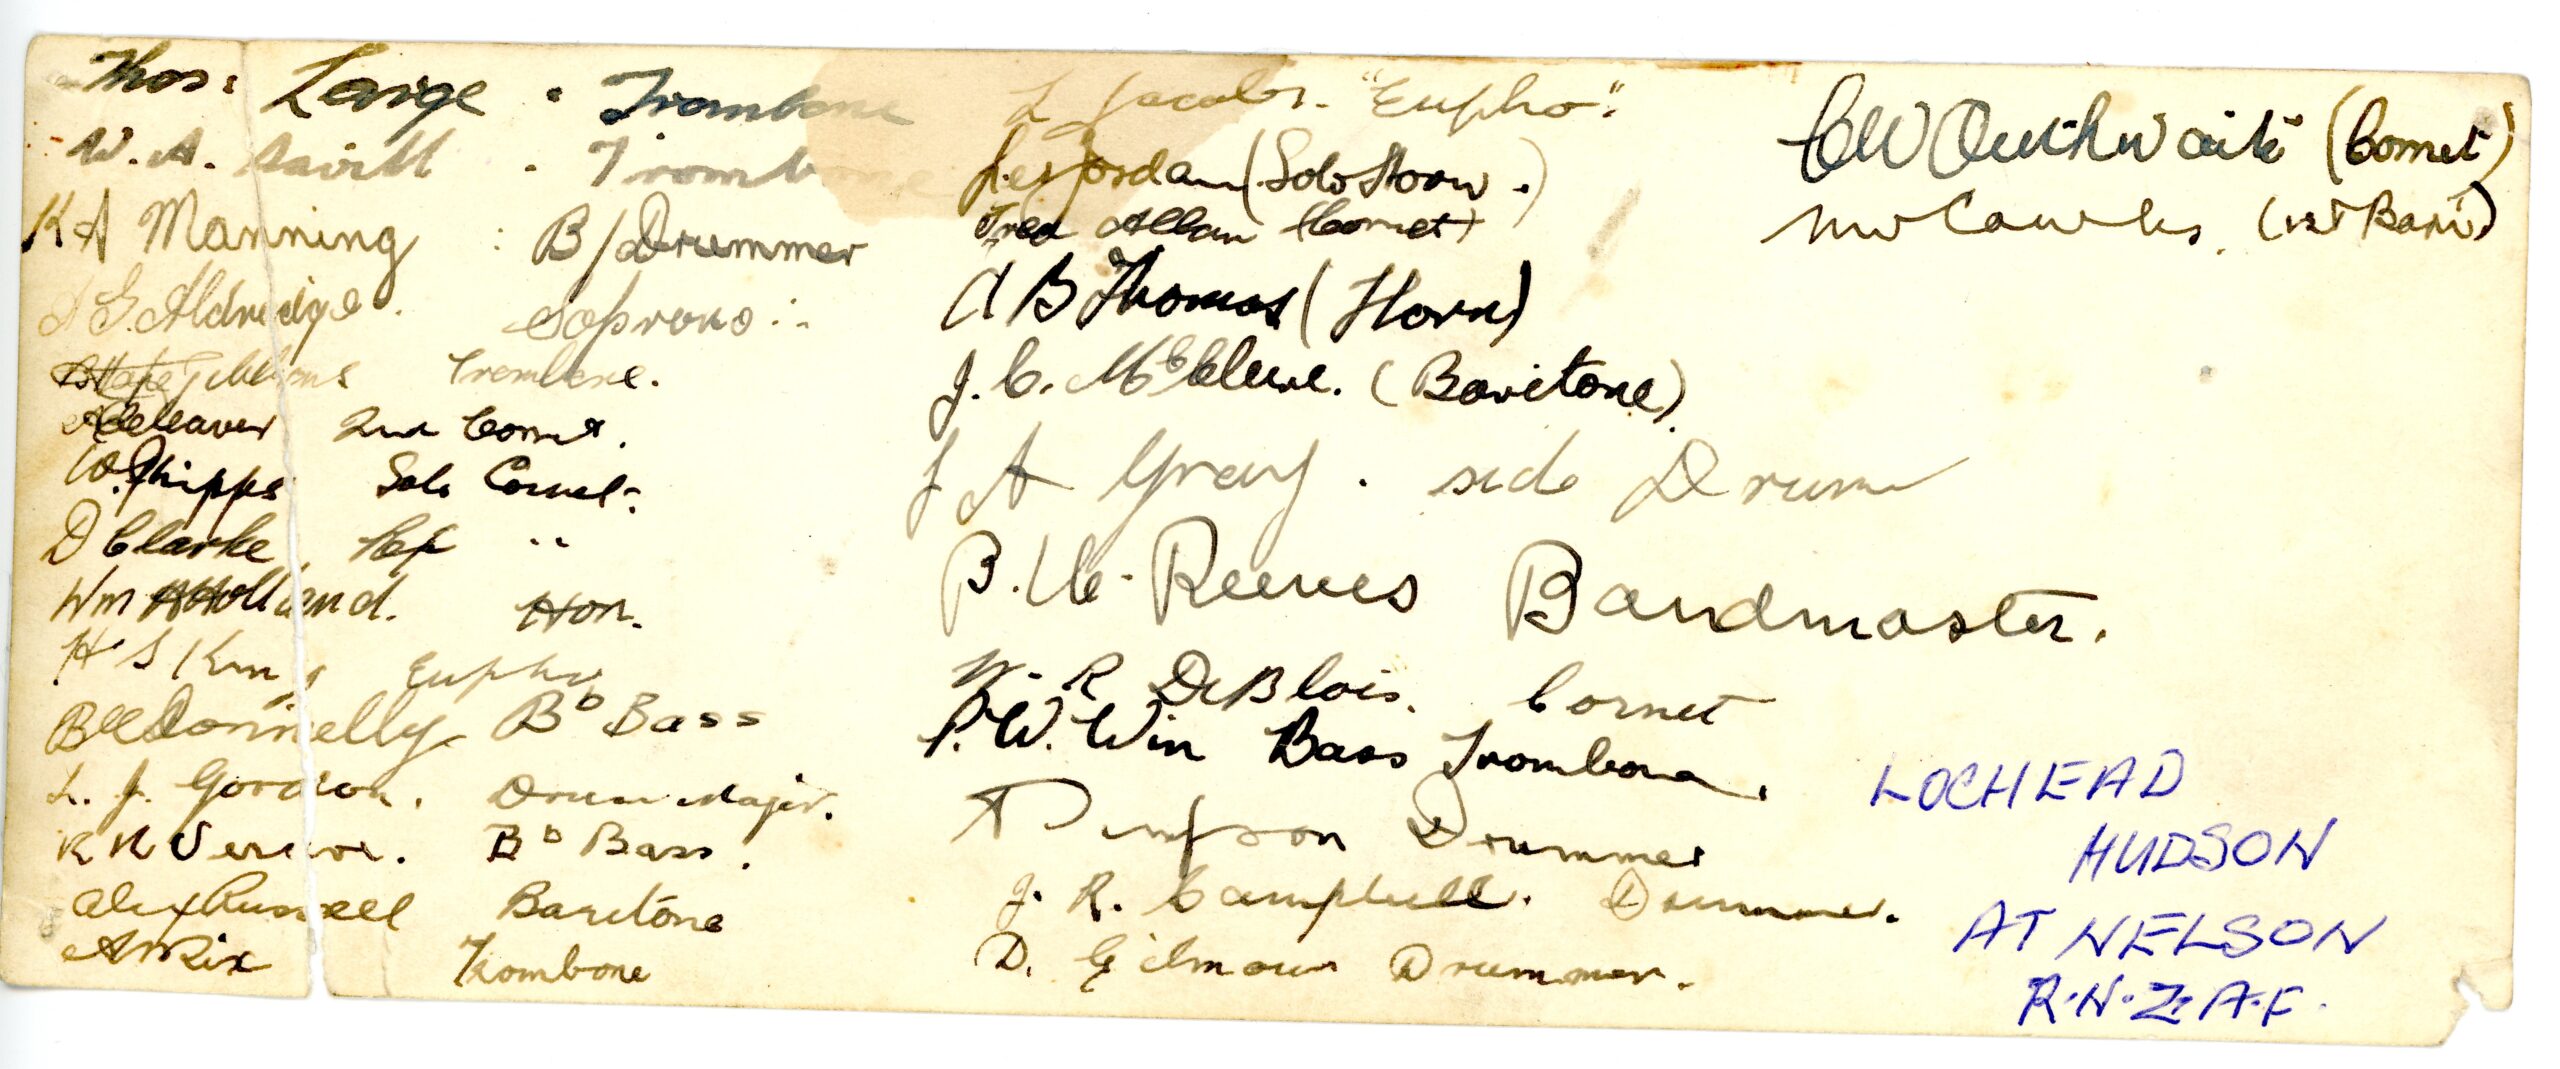 Thos: Large · Trombone
W. A. Savill · Trombone
K A Manning : B/Drummer
A G. Aldredge. Soprano
Trombone.
A Cleaver 2nd Cornet.
W. Phipps Solo Cornet.
D Clarke, Rep "
Wm A Holland. Hon.
H S King Eupho
B Donnelly Bb Bass
L. J. Gordon. Drum Major.
R R Bb Bass.
Alex Russell Baritone
A Rix Trombone
L Jacobs. "Eupho".
Les Jordan (Solo Horn.)
Fred Allan (Cornet)
A B Thomas (Horn)
J. C. McClure. (Baritone)
J A Gray. side Drum
B. W. Reeves Bandmaster.
W. R DeBlois. Cornet
P. W. Win Bass Trombone.
Timpson Drummer
J. R. Campbell. Drummer.
D. Gilmour Drummer.
C W Outhwaite (Cornet)
(1st Bari)
LOCHEAD
HUDSON
AT NELSON
R.N.Z.A.F.